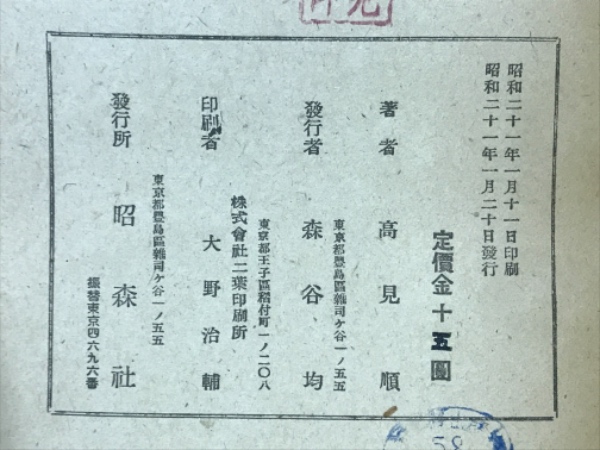 昭和二十一年一月十一日印刷
昭和二十一年一月二十日發行
定價金十五圓
著者 高見順
東京都豊島區雜司ケ谷一ノ五五
發行者 森谷均
東京都王子區稻付町一ノ二〇八
株式會社二葉印刷所
印刷者 大野治輔
東京都豊島區雜司ケ谷一ノ五五
發行所 昭森社
振替東京四六九六番
58